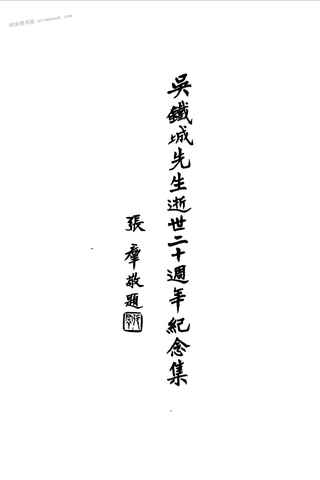 吳鐵城先生逝世二十週年紀念集
張羣敬題